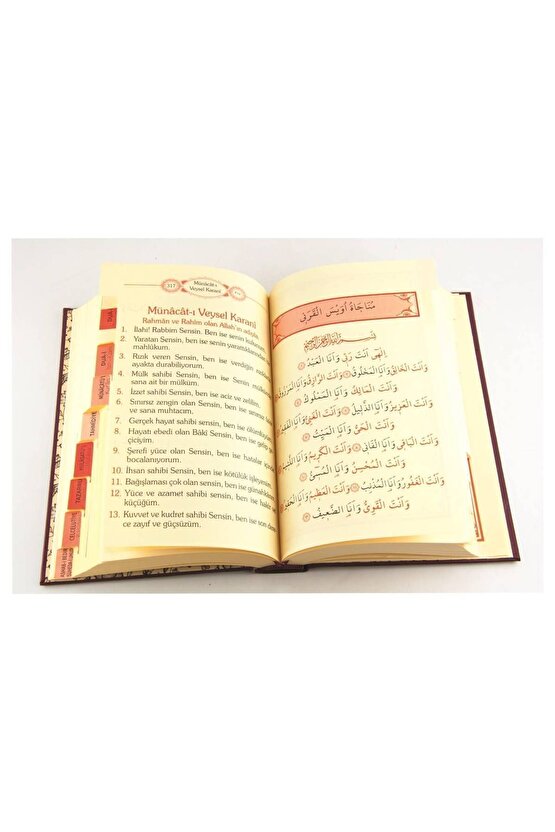 317
Münâcât-ı
Veysel Karanî
Münâcât-ı Veysel Karanî
Rahman ve Rahîm olan Allah'ın adıyla
1. İlahî! Rabbim Sensin. Ben ise senin kulunum
2. Yaratan Sensin, ben ise senin yarattıklarından
mahlûkum.
3. Rızık veren Sensin, ben ise verdiğin
ayakta durabiliyorum.
4. Mülk sahibi Sensin, ben ise Senin
sana ait bir mülküm.
5. İzzet sahibi Sensin, ben ise aciz ve zelilim.
6. Sınırsız zengin olan Sensin, ben ise
ve sana muhtacım.
7. Gerçek hayat sahibi Sensin, ben ise ölümlüyüm
8. Hayatı ebedi olan Bâki Sensin, ben ise
çiciyim.
9. Şerefi yüce olan Sensin, ben ise hatalar
bocalanıyorum.
10. İhsan sahibi Sensin, ben ise kötülük işleyen
11. Bağışlaması çok olan sensin, ben ise günahkârım
12. Yüce ve azamet sahibi sensin, ben ise
küçüğüm.
13. Kuvvet ve kudret sahibi Sensin, ben ise son dere-
ce zayıf ve güçsüzüm.
DUA-İ
TAHMİDİYE
CELCELUTİYE
مُنَاجَاةُ اُوَيْسِ الْقَرَنِى
اِلٰهِى اَنْتَ رَبِّى وَاَنَا الْعَبْدُ
وَاَنْتَ الْخَالِقُ وَاَنَا الْمَخْلُوقُ وَاَنْتَ الرَّزَّاقُ وَاَنَا الْمَرْزُوقُ
وَاَنْتَ الْمَالِكُ وَاَنَا الْمَمْلُوكُ
وَاَنْتَ الْعَزِيزُ وَاَنَا الذَّلِيلُ وَاَنْتَ الْغَنِىُّ وَاَنَا الْفَقِيرُ
وَاَنْتَ الْحَىُّ وَاَنَا الْمَيِّتُ
وَاَنْتَ الْبَاقِى وَاَنَا الْفَانِى وَاَنْتَ الْكَرِيمُ وَاَنَا
وَاَنْتَ الْمُحْسِنُ وَاَنَا الْمُسِىءُ
وَاَنْتَ الْغَفُورُ وَاَنَا الْمُذْنِبُ وَاَنْتَ الْعَظِيمُ وَاَنَا الْحَقِيرُ
وَاَنْتَ الْقَوِىُّ وَاَنَا الضَّعِيفُ